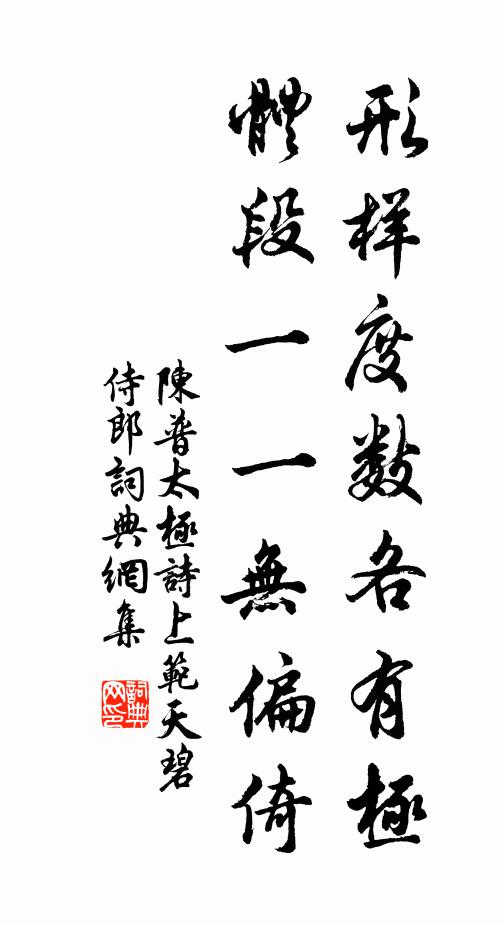 形样度数各有極
體段一一無偏倚
陳普太極詩上範天碧
侍郎詞典網集
詞典网印